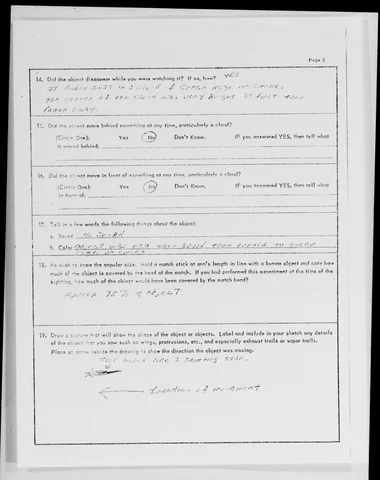 Page 3
14. Did the object disappear while you were watching it? If so, how? YES
IT FADED AWAY IN A CLOUD OF GREEN HAZE OR SMOKE.
THE CENTER OF THE CLOUD WAS VERY BRIGHT AT FIRST THEN
FADED AWAY.
15. Did the object move behind something at any time, particularly a cloud?
(Circle One): Yes No Don't Know. IF you answered YES, then tell what
it moved behind:
16. Did the object move in front of something at any time, particularly a cloud?
(Circle One): Yes No Don't Know. IF you answered YES, then tell what
in front of:
17. Tell in a few words the following things about the object:
a. Sound NO SOUND
b. Color OBJECT WAS RED WHEN THEN TURNED TO
18. We wish to know the angular size. Hold a match stick at arm's length in line with a known object and note how
much of the object is covered by the head of the match. If you had performed this experiment at the time of the
sighting, how much of the object would have been covered by the match head?
APPROX 75% of OBJECT
19. Draw a picture that will show the shape of the object or objects. Label and include in your sketch any details
of the object that you saw such as wings, protrusions, etc., and especially exhaust trails or vapor trails.
Place an arrow beside the drawing to show the direction the object was moving.
Tail like a shooting star.
direction of movement